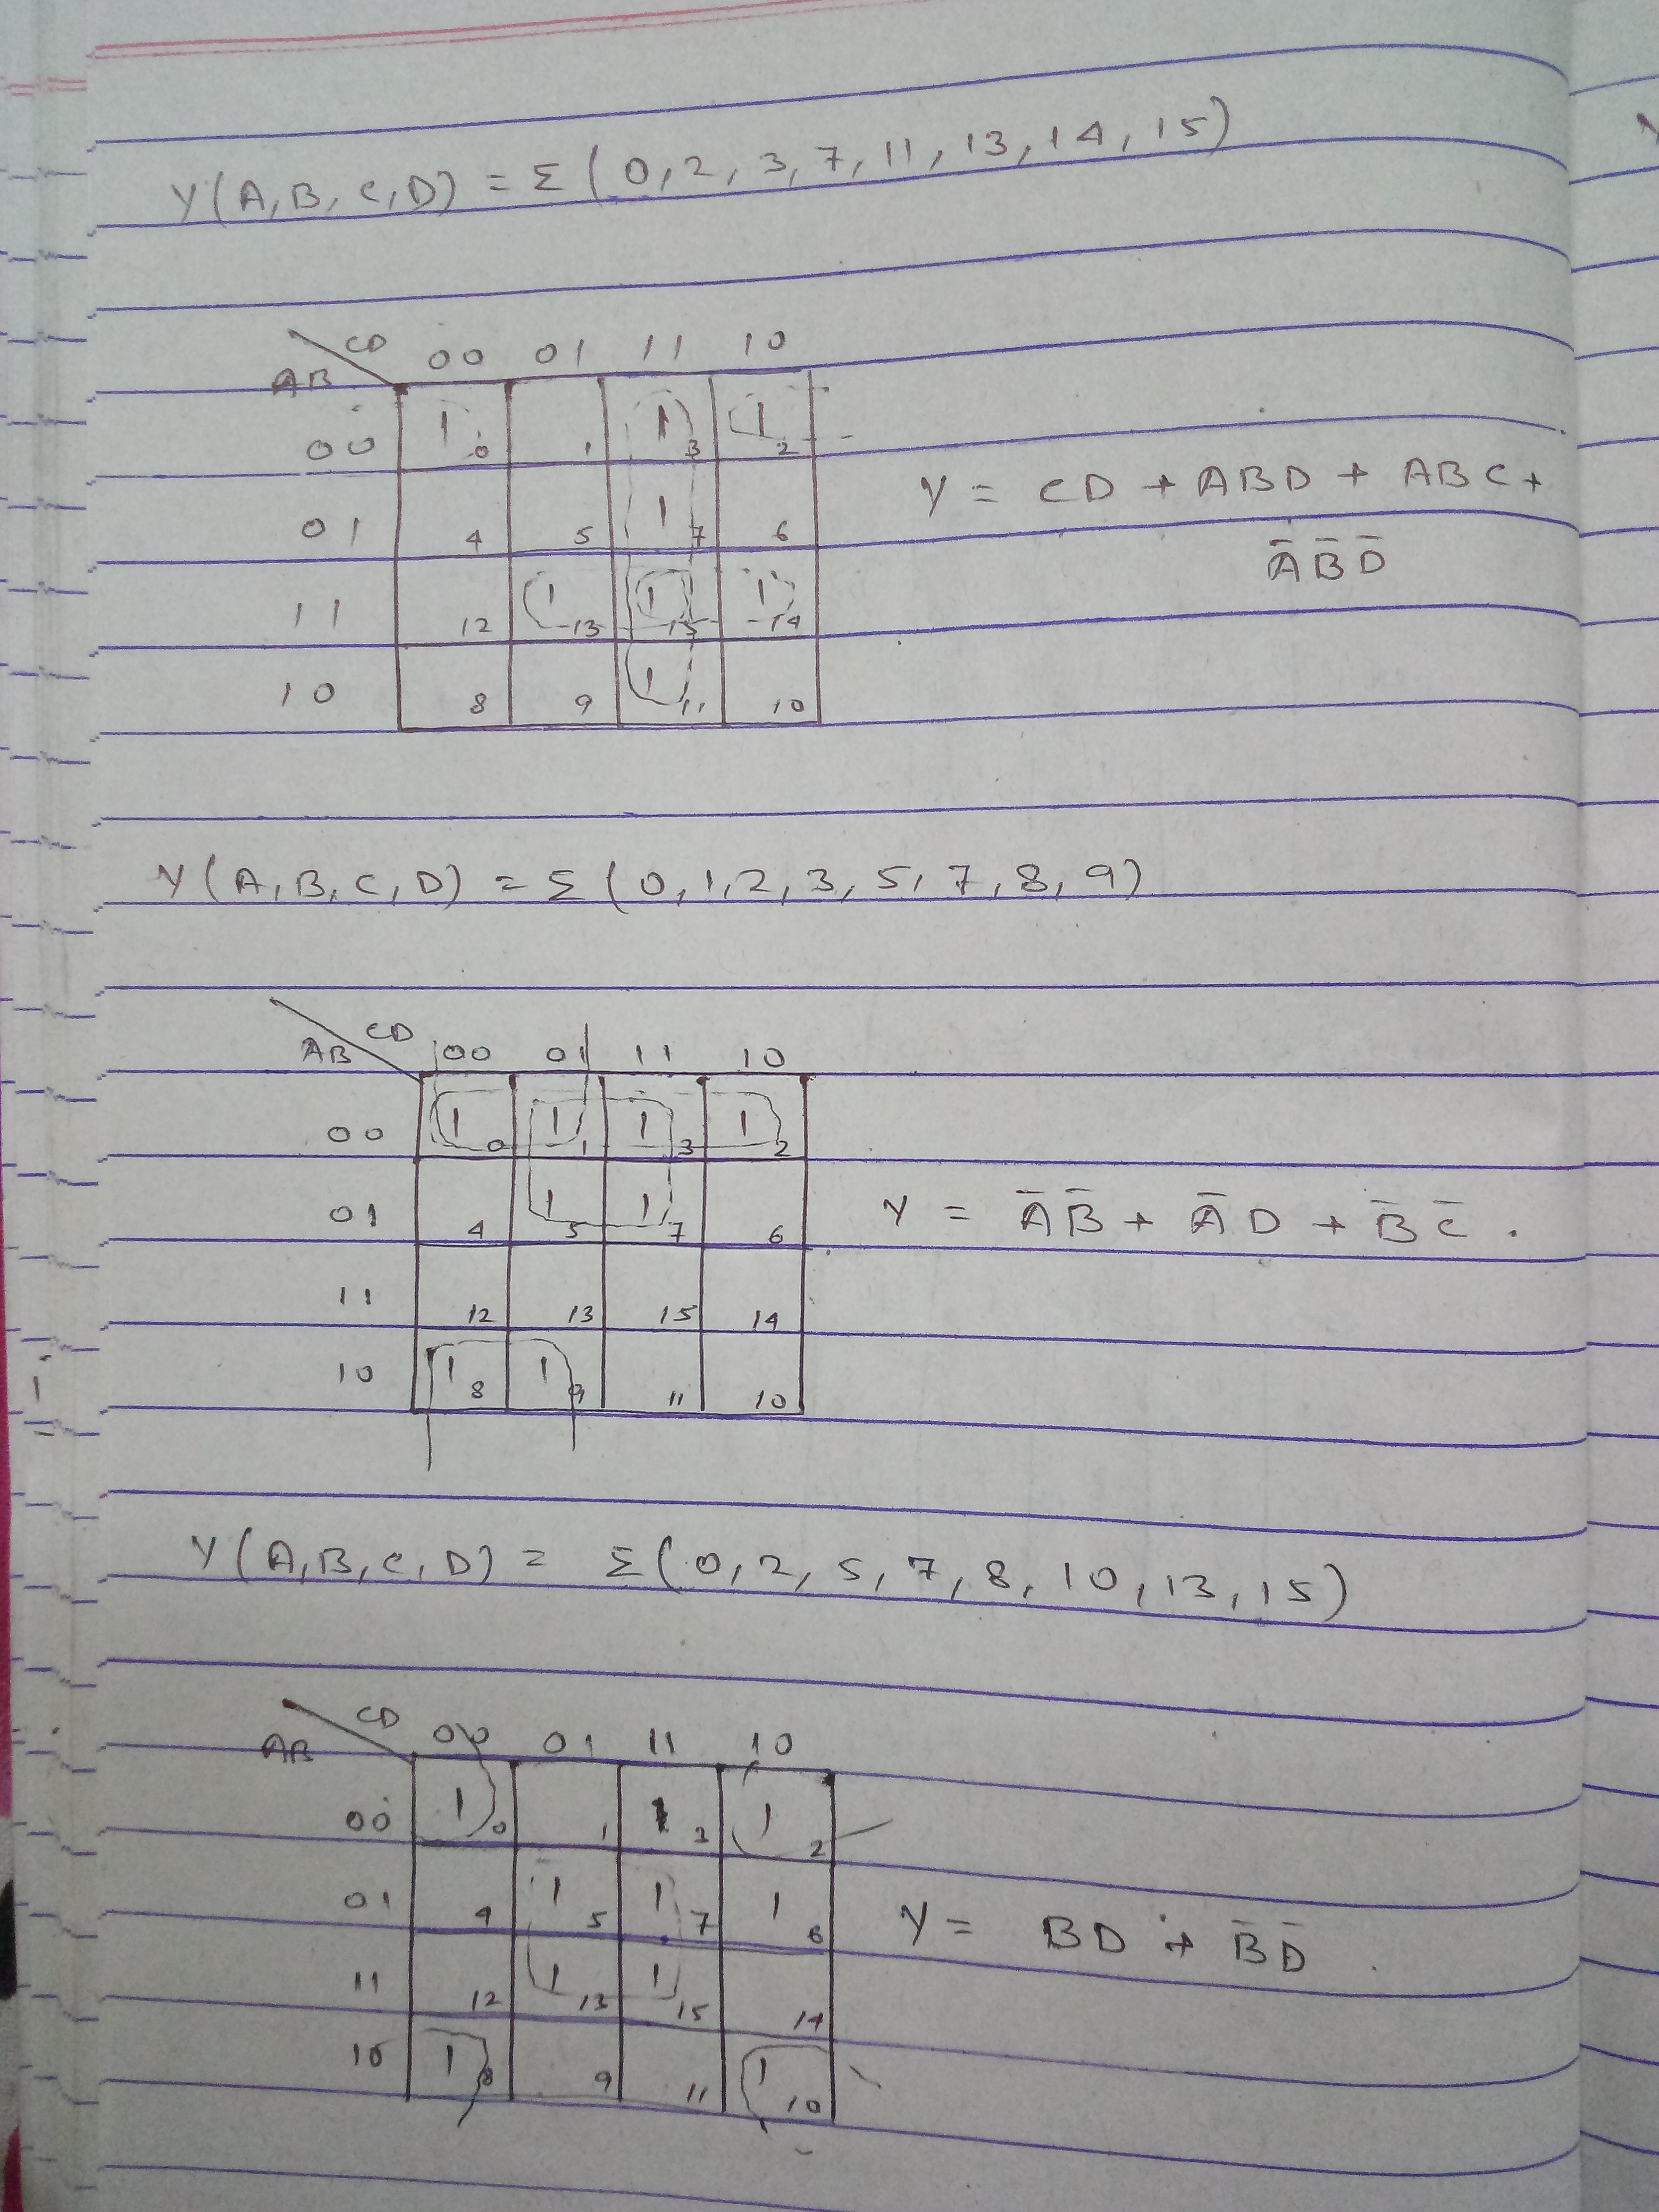 Y(A,B,C,D) = Σ(0,2,3,7,11,13,14,15)
CD
AB
00 01 11 10
00 1 0 1 1 3 1 2
01 4 5 1 7 6
11 12 1 13 1 15 1 14
10 8 9 1 11 10
Y = CD + ABD + ABC +
A̅ B̅ D̅
Y(A,B,C,D) = Σ(0,1,2,3,5,7,8,9)
CD
AB
00 01 11 10
00 1 0 1 1 1 3 1 2
01 4 1 5 1 7 6
11 12 13 15 14
10 1 8 1 9 11 10
Y = A̅B̅ + A̅D + B̅C̅.
Y(A,B,C,D) = Σ(0,2,5,7,8,10,13,15)
CD
AB
00 01 11 10
00 1 0 1 1 3 1 2
01 4 1 5 1 7 1 6
11 12 1 13 1 15 14
10 1 8 9 11 1 10
Y = BD + B̅D̅.